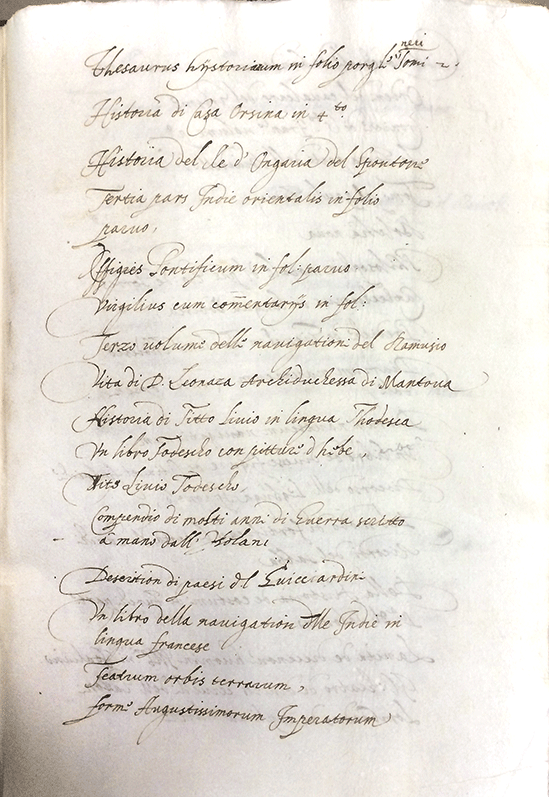 Thesaurus hystoricum in folio
neri
Tomi 2.
Historia di Casa Orsina in 4to.
Historia del Re d'Ongaria del Spontone
Tertia pars Indie orientalis in folio
paruo,
Effigies Pontificum in fol: paruo
Virgilius cum com̄entarijs in fol:
Terzo volume delle navigationi del Ramusio
Vita di D. Leonora Archiduchessa di Mantova
Historia di Titto Livio in lingua Thodesca
Un libro Todescho con pitture d'herbe,
Tito Livio Todescho
Compendio di molti anni di Guerra scritto
à mano dall'
Descrition di paesi del Guicciardini
Un libro della navigation delle Indie in
lingua francese
Teatrum orbis terrarum,
forme Augustissimorum Imperatorum